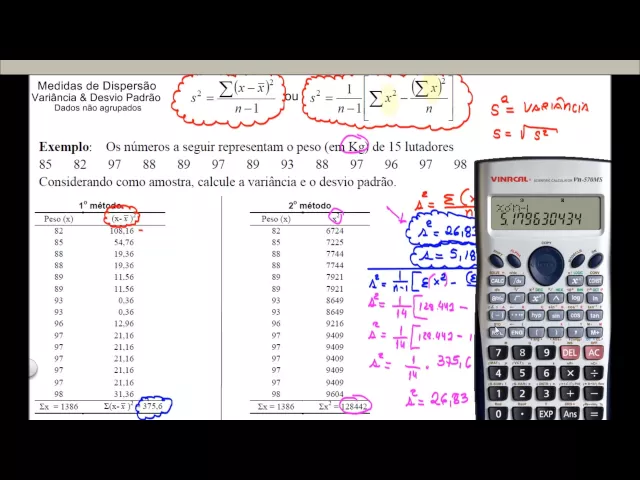 Medidas de Dispersão
Variância & Desvio Padrão
Dados não agrupados
s² = ∑(x − x̅)² / n−1 ou s² = 1/n−1 [∑x² − (∑x)²/n]
s² = VARIÂNCIA
s = √s²
Exemplo: Os números a seguir representam o peso (em Kg) de 15 lutadores
85 82 97 88 89 97 89 93 88 97 96 97 98
Considerando como amostra, calcule a variância e o desvio padrão.
1º método
Peso (x) (x-x̅)²
82 108,16
85 54,76
88 19,36
88 19,36
89 11.56
89 11,56
93 0,36
93 0,36
96 12,96
97 21,16
97 21,16
97 21,16
97 21,16
97 21,16
98 31.36
Σx = 1386 Σ(x-x̅)² = 375,6
2º método
Peso (x) x²
82 6724
85 7225
88 7744
88 7744
89 7921
89 7921
93 8649
93 8649
96 9216
97 9409
97 9409
97 9409
97 9409
97 9409
98 9604
Σx = 1386 Σx² = 128442
s² = Σ(x
s² = 26,83
s = 5,18
s² = 1/n-1 [Σx² − (Σ
s² = 1/14 [128.442 −
s² = 1/14 [128.442 −
s² = 1/14 . 375,6
s² = 26,83
VINACAL Vn-570MS
xσn-1
5.179630434
CALC
ENG
7 8 9 DEL AC
4 5 6
1 2 3
0 . EXP Ans =